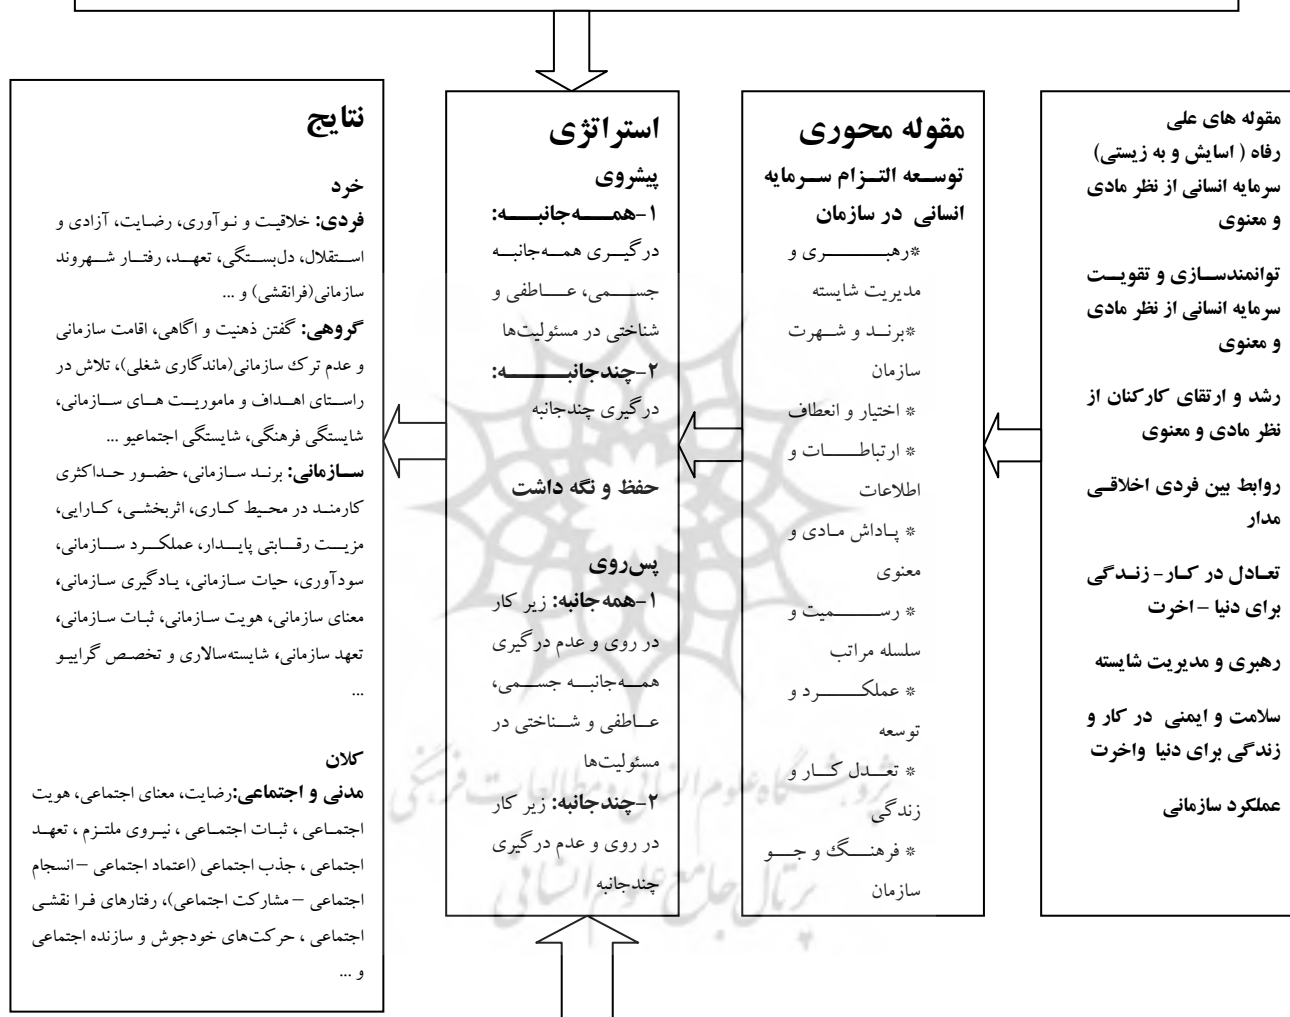 مقوله های علی
رفاه ( اسایش و به زیستی)
سرمایه انسانی از نظر مادی
و معنوی
توانمندسازی و تقویت
سرمایه انسانی از نظر مادی
و معنوی
رشد و ارتقای کارکنان از
نظر مادی و معنوی
روابط بین فردی اخلاقی
مدار
تعادل در کار- زندگی
برای دنیا – اخرت
رهبری و مدیریت شایسته
سلامت و ایمنی در کار و
زندگی برای دنیا واخرت
عملکرد سازمانی
مقوله محوری
توسعه التزام سرمایه
انسانی در سازمان
*رهبری و
مدیریت شایسته
*برند و شهرت
سازمان
* اختیار و انعطاف
* ارتباطات و
اطلاعات
* پاداش مادی و
معنوی
* رسمیت و
سلسله مراتب
* عملکرد و
توسعه
* تعدل کار و
زندگی
* فرهنگ و جو
سازمان
استراتژی
پیشروی
۱-همه‌جانبه:
درگیری همه‌جانبه
جسمی، عاطفی و
شناختی در مسئولیت‌ها
۲-چندجانبه:
درگیری چندجانبه
حفظ و نگه داشت
پس‌روی
۱-همه‌جانبه: زیر کار
در روی و عدم درگیری
همه‌جانبه جسمی،
عاطفی و شناختی در
مسئولیت‌ها
۲-چندجانبه: زیر کار
در روی و عدم درگیری
چندجانبه
نتایج
خرد
فردی: خلاقیت و نوآوری، رضایت، آزادی و
استقلال، دل‌بستگی، تعهد، رفتار شهروند
سازمانی(فرانقشی) و ...
گروهی: گفتن ذهنیت و اگاهی، اقامت سازمانی
و عدم ترک سازمانی(ماندگاری شغلی)، تلاش در
راستای اهداف و ماموریت های سازمانی،
شایستگی فرهنگی، شایستگی اجتماعیو ...
سازمانی: برند سازمانی، حضور حداکثری
کارمند در محیط کاری، اثربخشی، کارایی،
مزیت رقابتی پایدار، عملکرد سازمانی،
سودآوری، حیات سازمانی، یادگیری سازمانی،
معنای سازمانی، هویت سازمانی، ثبات سازمانی،
تعهد سازمانی، شایسته‌سالاری و تخصص گراییو
...
کلان
مدنی و اجتماعی:رضایت، معنای اجتماعی، هویت
اجتماعی ، ثبات اجتماعی ، نیروی ملتزم ، تعهد
اجتماعی ، جذب اجتماعی (اعتماد اجتماعی –انسجام
اجتماعی – مشارکت اجتماعی)، رفتارهای فرا نقشی
اجتماعی ، حرکت‌های خودجوش و سازنده اجتماعی
و ...
پژوهشگاه علوم انسانی و مطالعات فرهنگی
پرتال جامع علوم انسانی